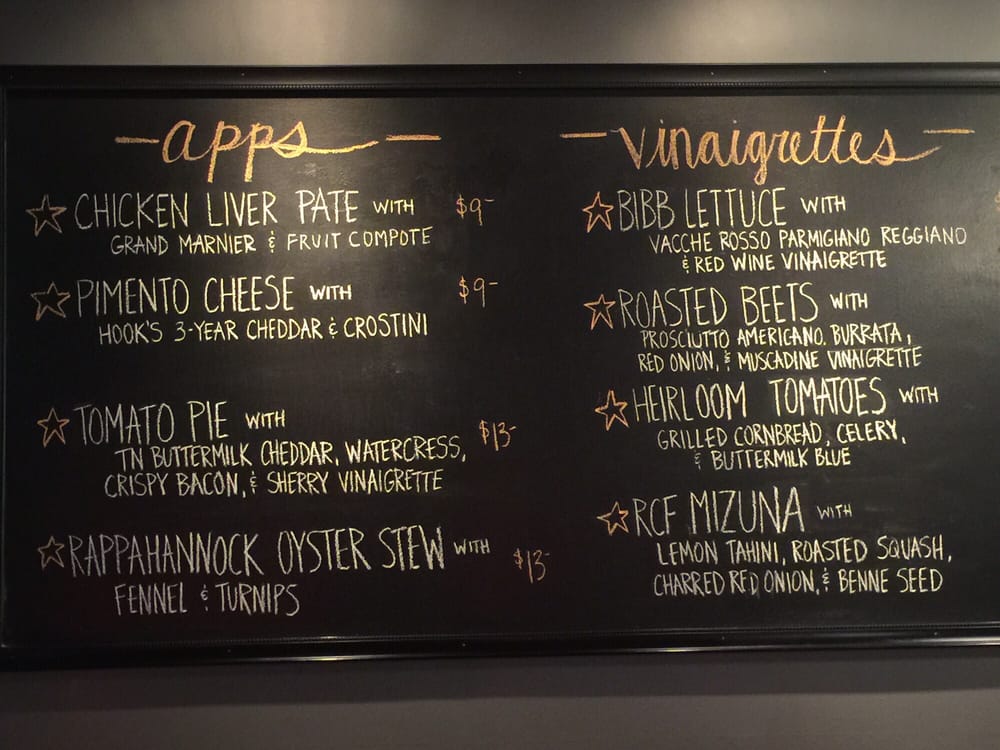 apps
CHICKEN LIVER PATE WITH $9-
GRAND MARNIER & FRUIT COMPOTE
PIMENTO CHEESE WITH $9-
HOOK'S 3-YEAR CHEDDAR & CROSTINI
TOMATO PIE WITH $13-
TN BUTTERMILK CHEDDAR, WATERCRESS,
CRISPY BACON, & SHERRY VINAIGRETTE
RAPPAHANNOCK OYSTER STEW WITH $13-
FENNEL & TURNIPS
vinaigrettes
BIBB LETTUCE WITH
VACCHE ROSSO PARMIGIANO REGGIANO
& RED WINE VINAIGRETTE
ROASTED BEETS WITH
PROSCIUTTO AMERICANO, BURRATA,
RED ONION, & MUSCADINE VINAIGRETTE
HEIRLOOM TOMATOES WITH
GRILLED CORNBREAD, CELERY,
& BUTTERMILK BLUE
RCF MIZUNA WITH
LEMON TAHINI, ROASTED SQUASH,
CHARRED RED ONION, & BENNE SEED